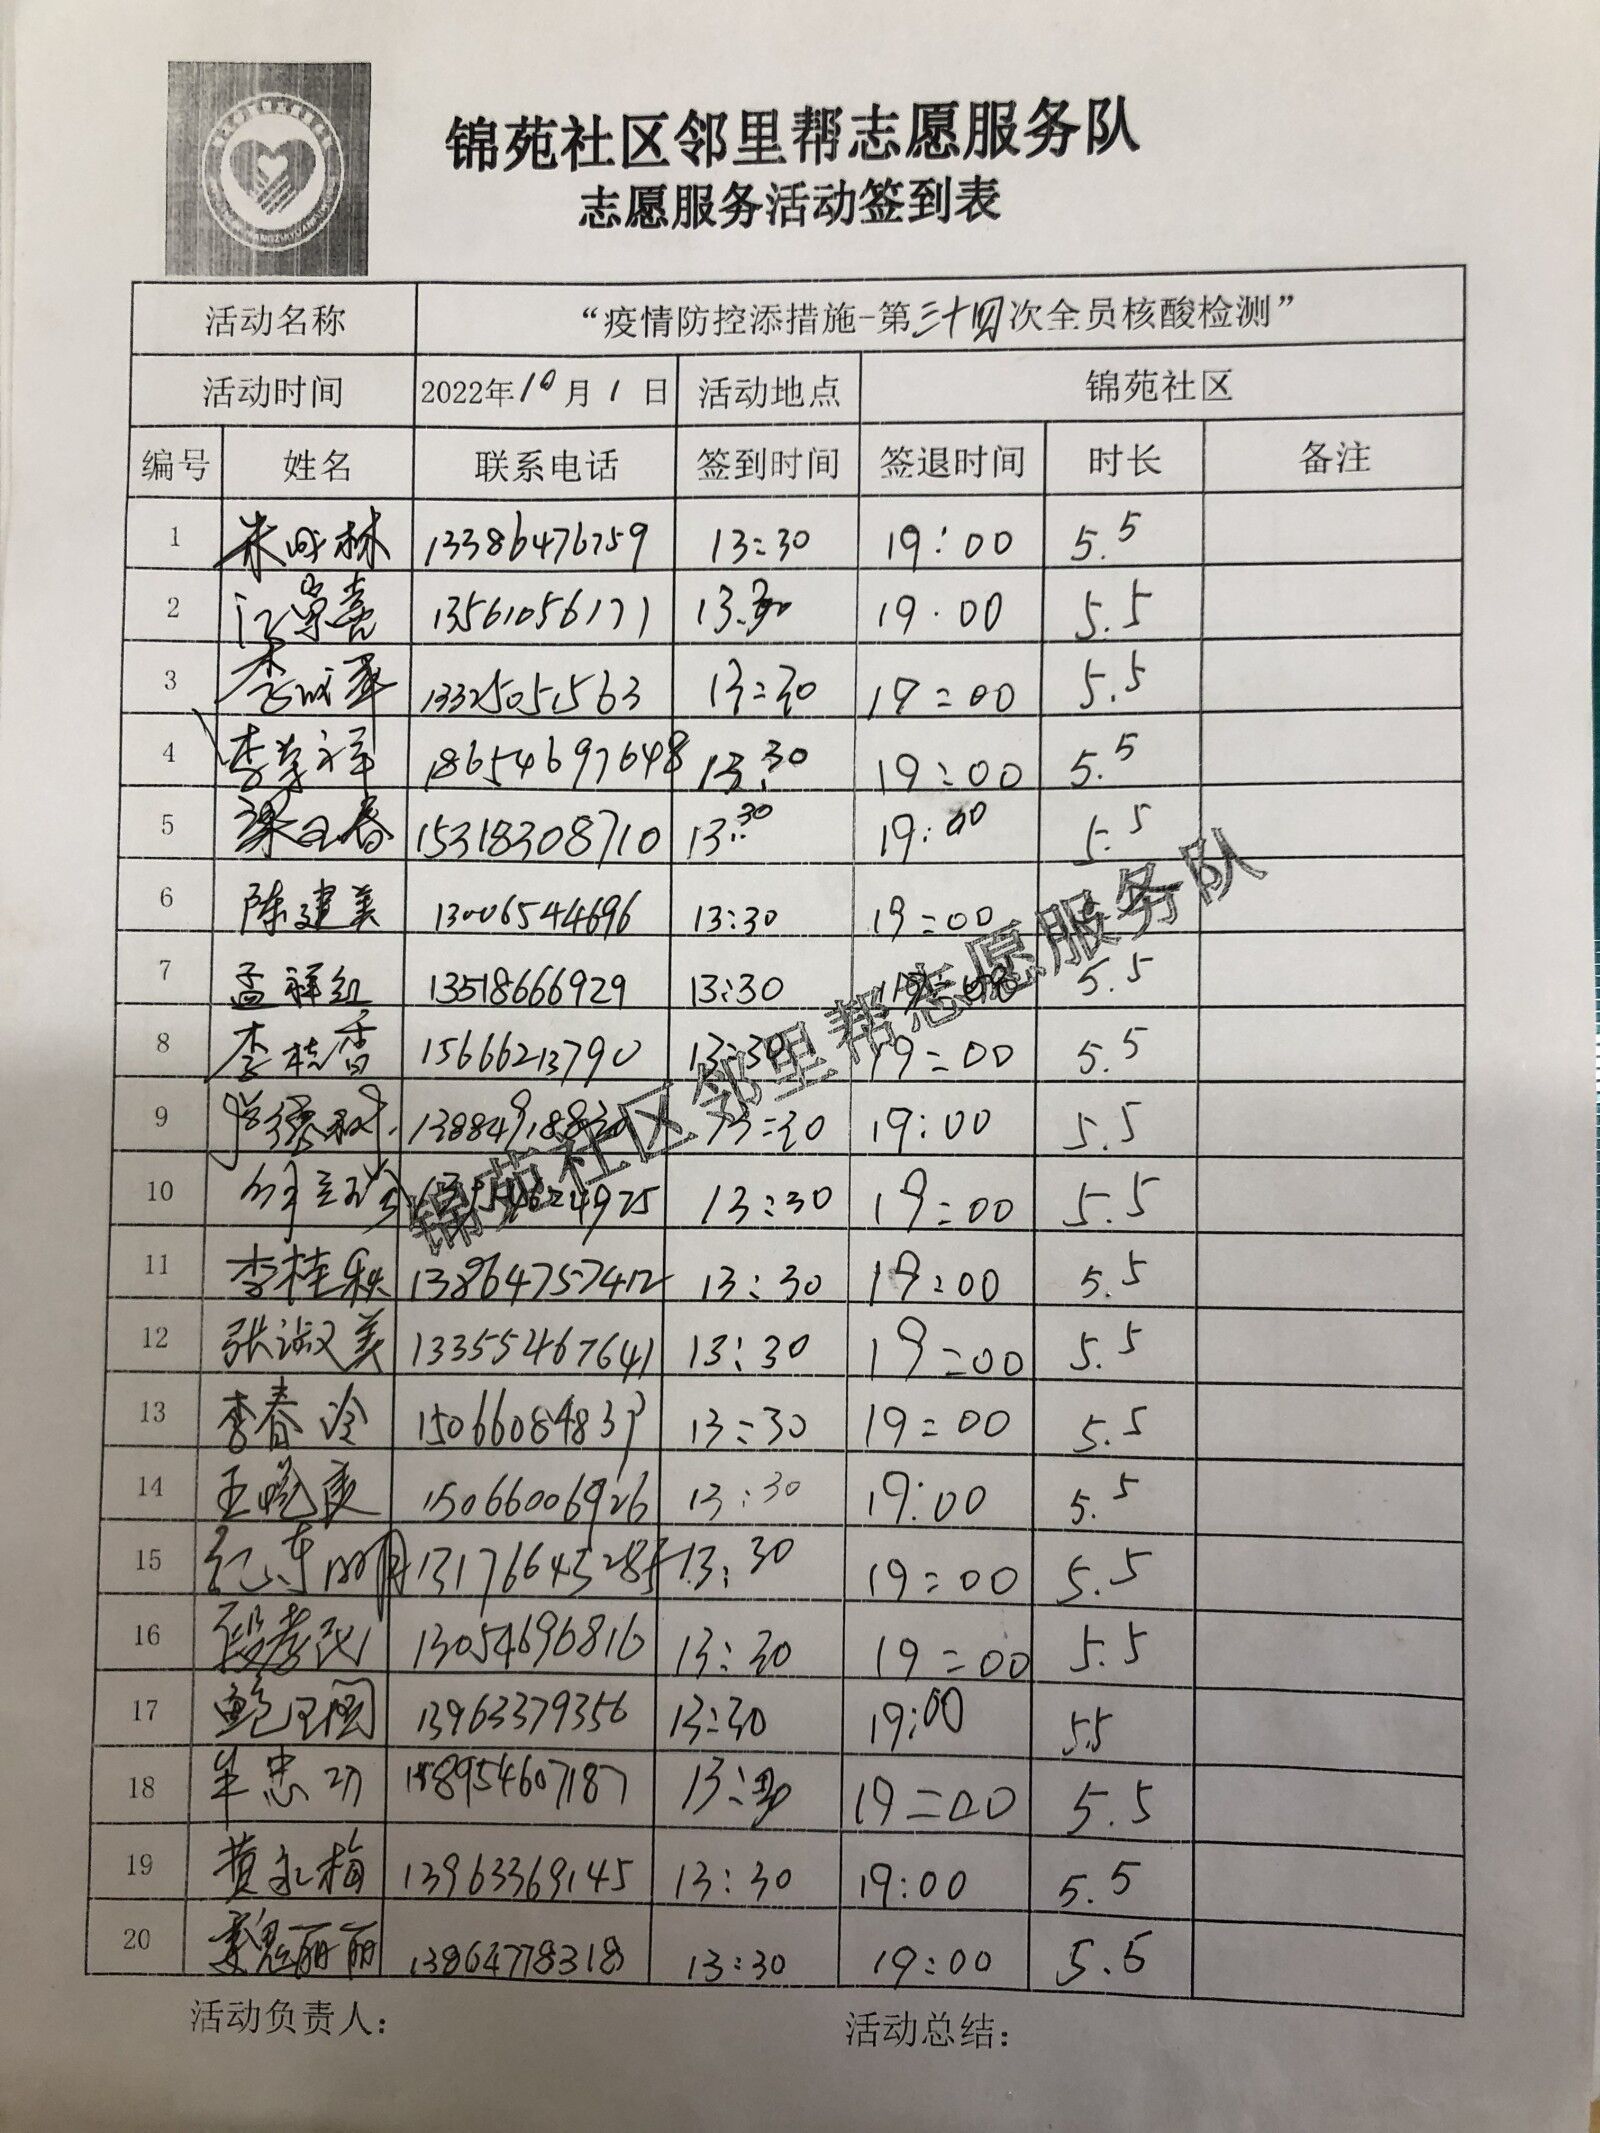 锦苑社区邻里帮志愿服务队
志愿服务活动签到表
活动名称 “疫情防控添措施-第三十四次全员核酸检测”
活动时间 2022年10月1日 活动地点 锦苑社区
编号 姓名 联系电话 签到时间 签退时间 时长 备注
1 朱成林 13386476759 13:30 19:00 5.5
2 江崇喜 13561056171 13:30 19:00 5.5
3 李成 13325051563 13:30 19:00 5.5
4 李荣祥 18654697648 13:30 19:00 5.5
5 梁玉春 15318308710 13:30 19:00 5.5
6 陈建美 13006544696 13:30 19:00
7 孟祥红 13518666929 13:30 19:00 5.5
8 李桂香 15666213790 13:30 19:00 5.5
9 13:30 19:00 5.5
10 13:30 19:00 5.5
11 李桂秩 13864757412 13:30 19:00 5.5
12 张淑美 13355467641 13:30 19:00 5.5
13 李春冷 15066084839 13:30 19:00 5.5
14 王晓 15066006926 13:30 19:00 5.5
15 纪东明 13176645285 13:30 19:00 5.5
16 段孝民 13054696816 13:30 19:00 5.5
17 鲍玉国 13963379356 13:30 19:00 5.5
18 牟忠功 18954607187 13:30 19:00 5.5
19 黄永梅 13963369145 13:30 19:00 5.5
20 魏丽丽 13864778318 13:30 19:00 5.5
锦苑社区邻里帮志愿服务队
活动负责人: 活动总结: